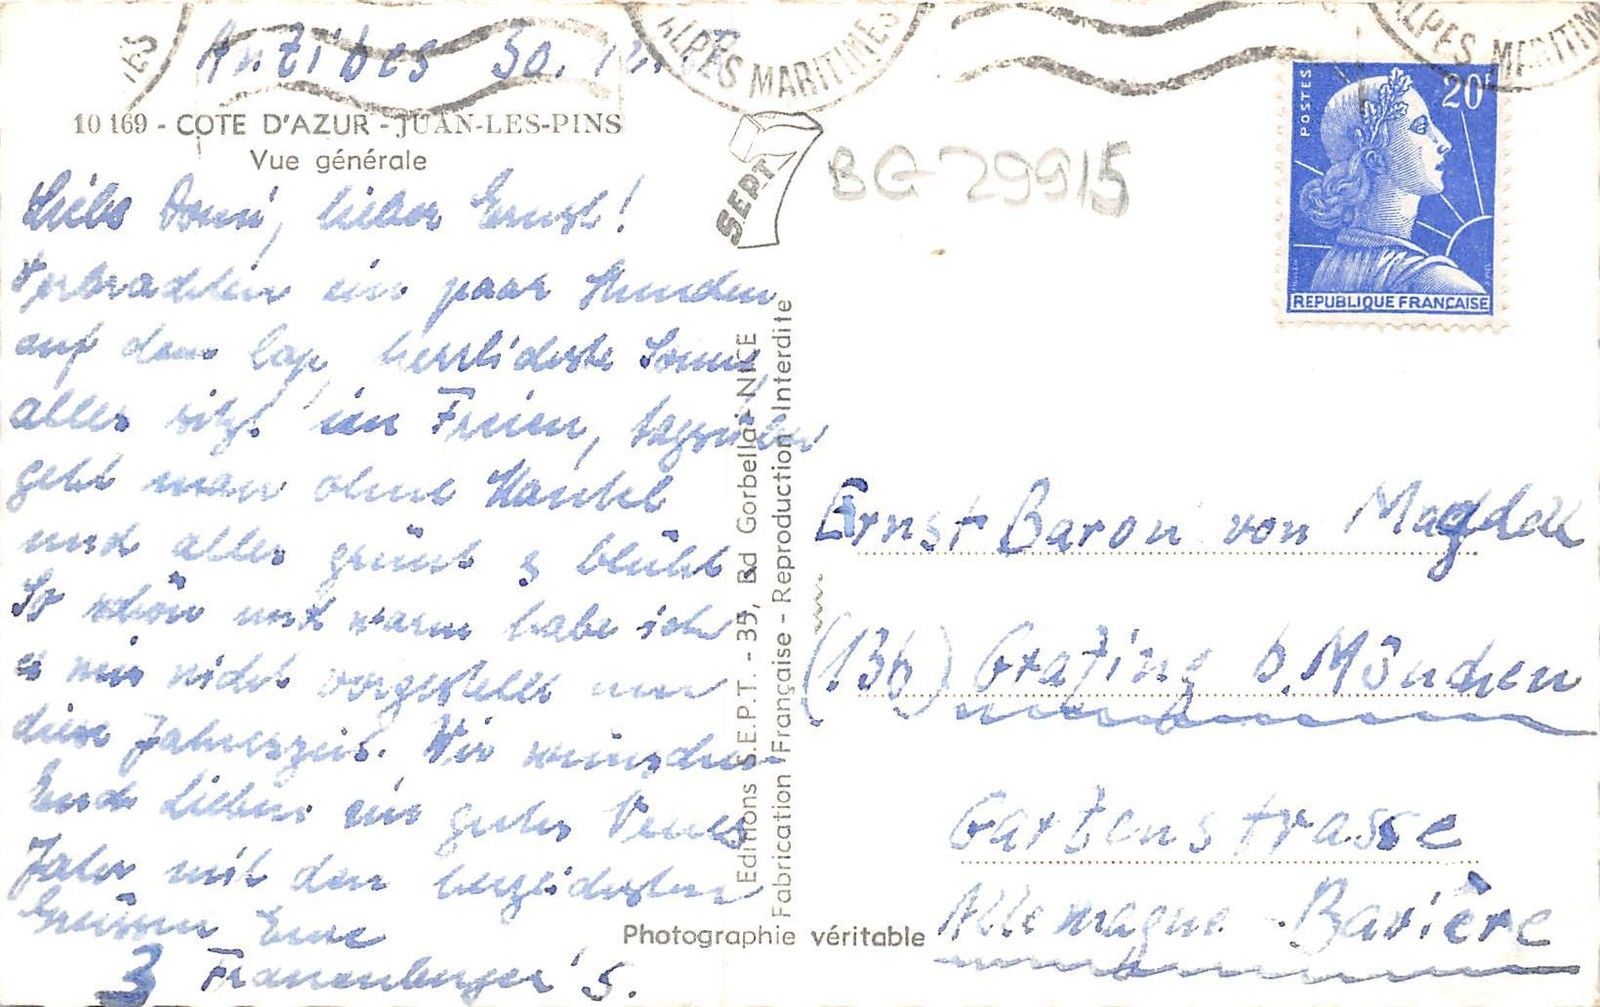 Antibes 30.
ALPES MARITIMES
ALPES MARITIM
10 169 - COTE D'AZUR - JUAN-LES-PINS
Vue générale
SEPT 7
BG 29915
POSTES
20F
REPUBLIQUE FRANÇAISE
lieber Ernst!
Verbrachten ein paar Stunden
auf dem Cap, herrlichste Sonne,
alles sitzt im Freien, tagsüber
geht man ohne Mantel
und alles grünt & blüht
So schön und warm habe ich
es mir nicht vorgestellt um
diese Jahreszeit. Wir wünschen
Euch Lieben ein gutes Neues
Jahr mit den herzlichsten
Grüssen Eure
3 Frauenberger's.
Editions S.E.P.T. - 35, Bd Gorbella - NICE
Fabrication Française - Reproduction Interdite
Photographie véritable
Ernst Baron von
(13b) Grafing b. München
Gartenstrasse
Allemagne - Bavière